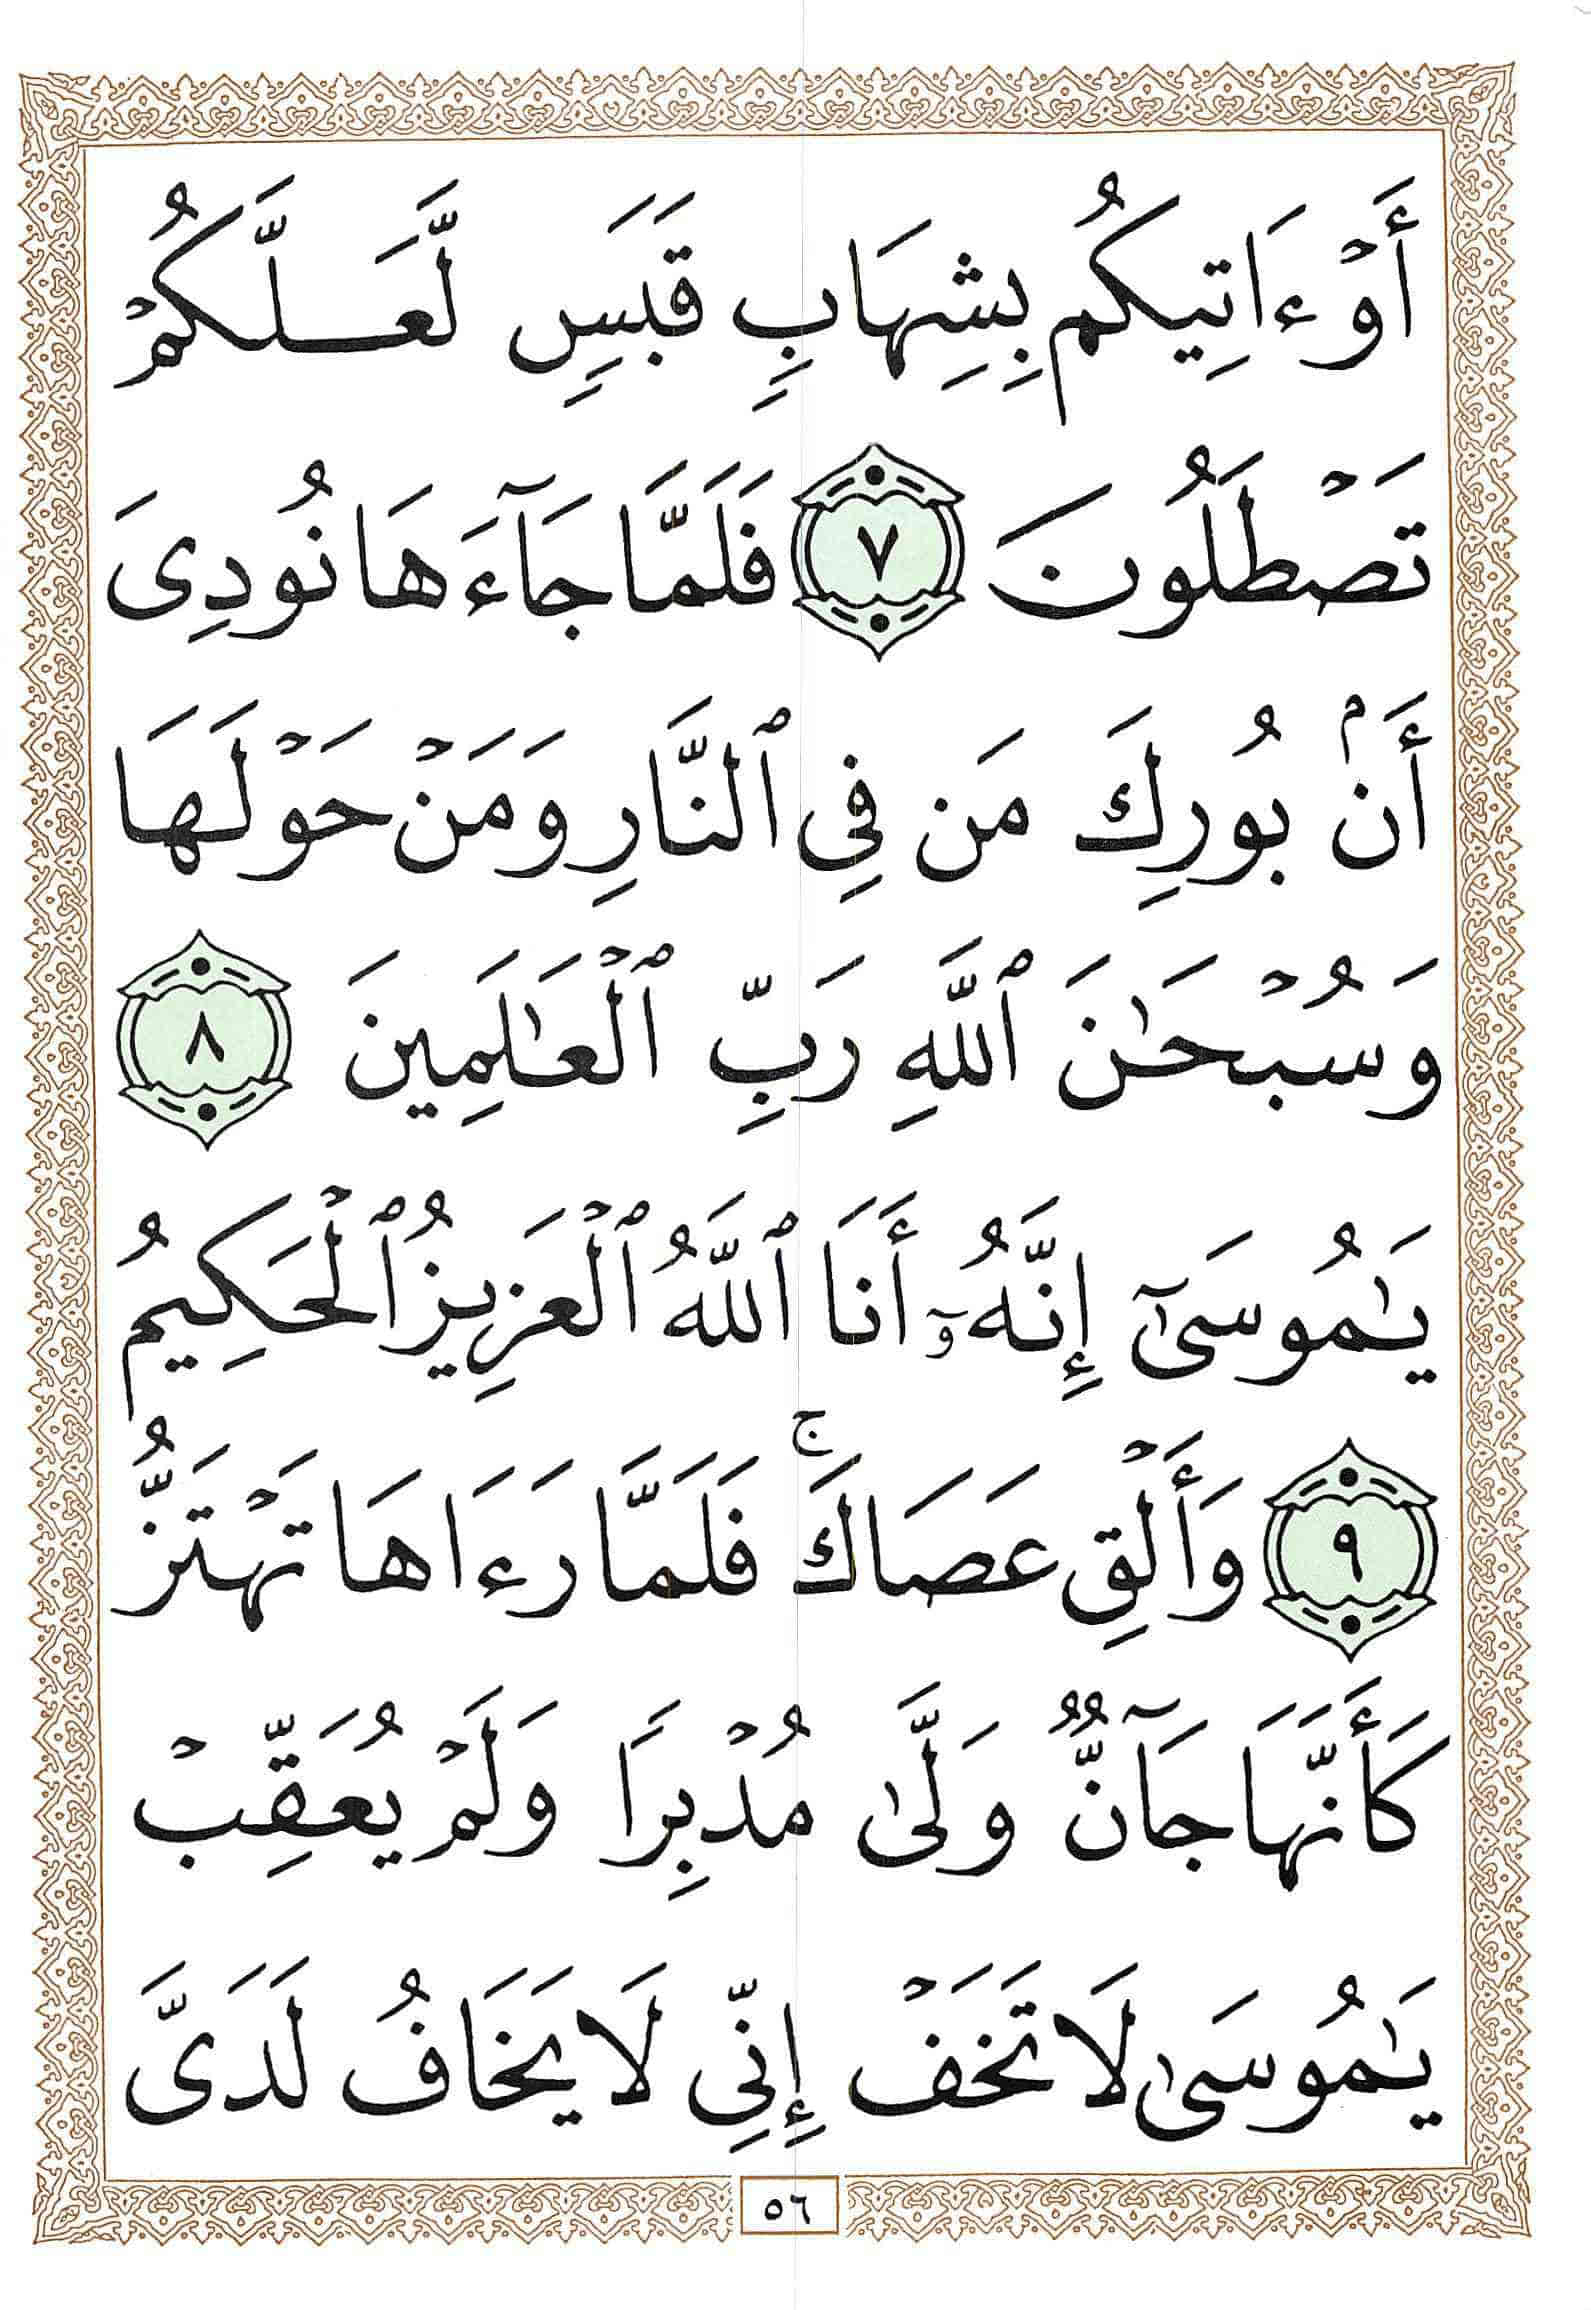 أَوۡ ءَاتِيكُم بِشِهَابٖ قَبَسٖ لَّعَلَّكُمۡ
تَصۡطَلُونَ ٧ فَلَمَّا جَآءَهَا نُودِيَ
أَنۢ بُورِكَ مَن فِي ٱلنَّارِ وَمَنۡ حَوۡلَهَا
وَسُبۡحَٰنَ ٱللَّهِ رَبِّ ٱلۡعَٰلَمِينَ ٨
يَٰمُوسَىٰٓ إِنَّهُۥٓ أَنَا ٱللَّهُ ٱلۡعَزِيزُ ٱلۡحَكِيمُ
٩ وَأَلۡقِ عَصَاكَۚ فَلَمَّا رَءَاهَا تَهۡتَزُّ
كَأَنَّهَا جَآنّٞ وَلَّىٰ مُدۡبِرٗا وَلَمۡ يُعَقِّبۡ
يَٰمُوسَىٰ لَا تَخَفۡ إِنِّي لَا يَخَافُ لَدَيَّ
٥٦